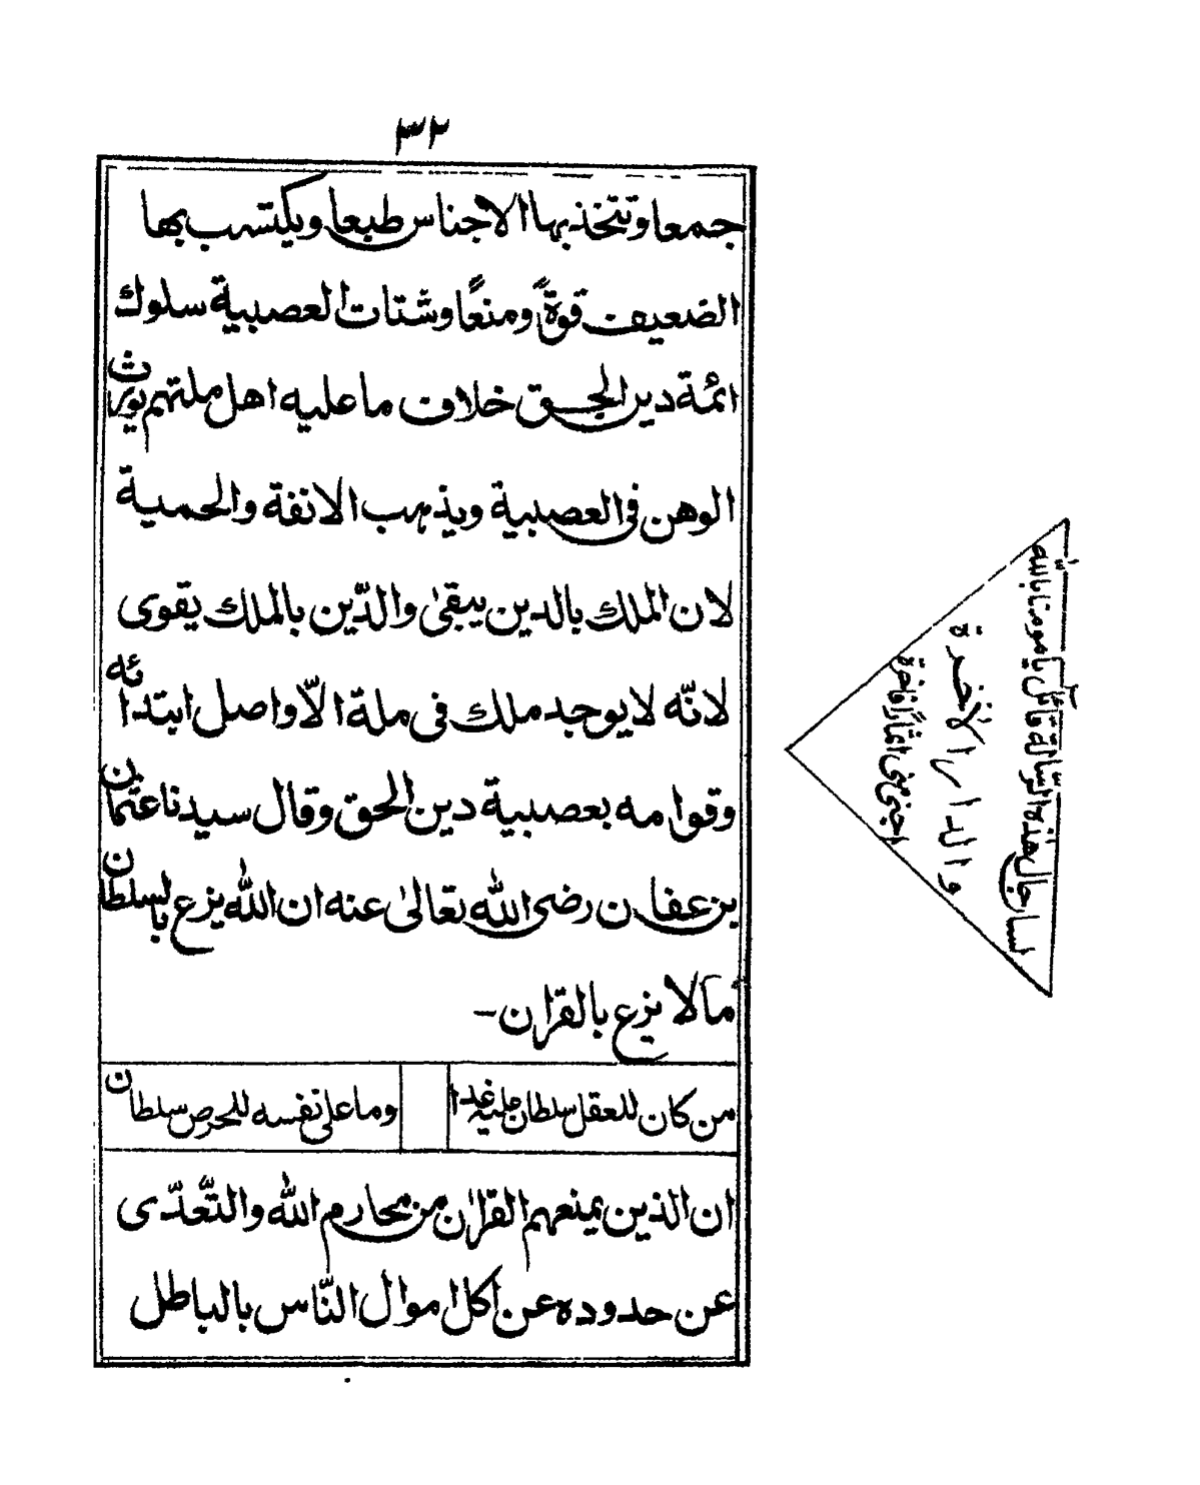 ٣٢
جمعا وتتخذ بها الاجناس طبعا ويكتسب بها
الضعيف قوةً ومنعًا وشتات العصبية سلوك
ائمة دين الحق خلاف ما عليه اهل ملتهم يورث
الوهن فى العصبية ويذهب الانفة والحمية
لان الملك بالدين يبقىٰ والدّين بالملك يقوى
لانّه لا يوجد ملك فى ملة الّا واصل ابتدائه
وقوامه بعصبية دين الحق وقال سيدنا عثمان
بن عفان رضى الله تعالىٰ عنه ان الله يزع بالسلطان
مالا يزع بالقران -
من كان للعقل سلطان عليه غدا
وما على نفسه للحرص سلطان
ان الذين يمنعهم القران من محارم الله والتّعدّى
عن حدوده عن اكل اموال النّاس بالباطل
لسا جال هذه الرسالة قائل يا مومنا بالله
والدار الاخرة
اجنى منى اثمارًا فاخرة